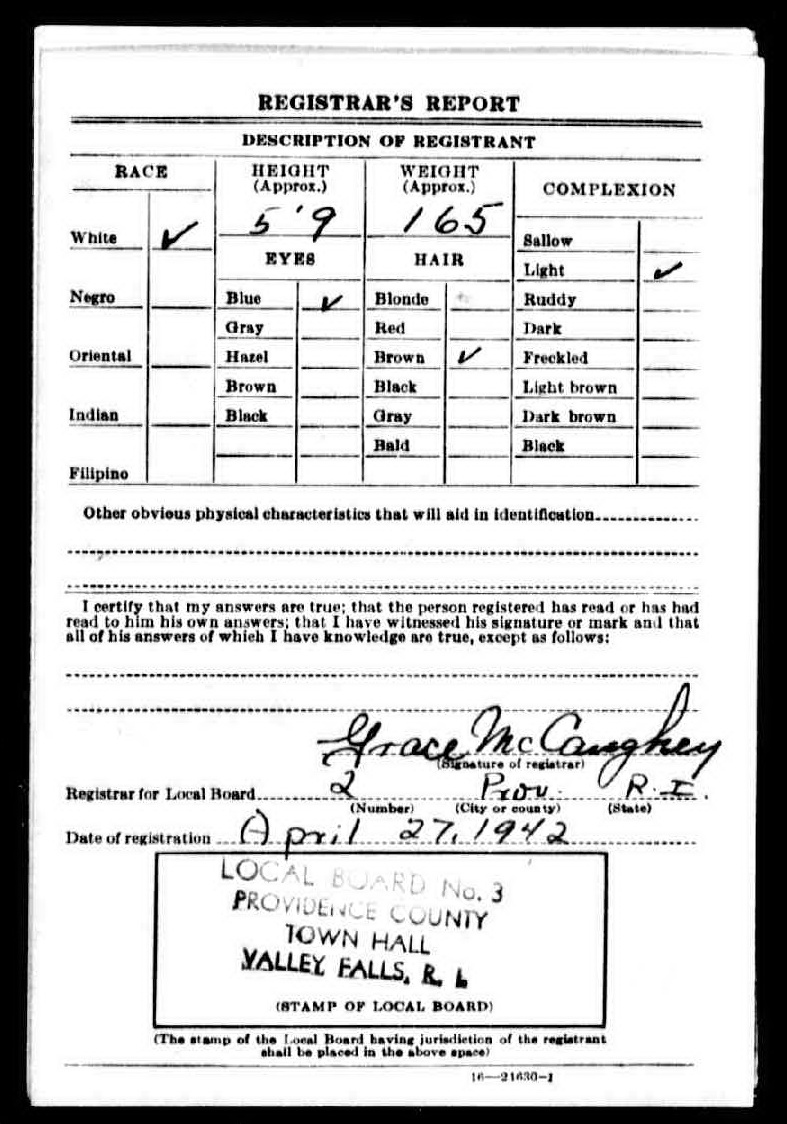 REGISTRAR'S REPORT
DESCRIPTION OF REGISTRANT
RACE
HEIGHT
(Approx.)
WEIGHT
(Approx.)
COMPLEXION
5'9
165
White ✓
EYES
HAIR
Sallow
Light ✓
Negro
Blue ✓
Blonde
Ruddy
Gray
Red
Dark
Oriental
Hazel
Brown ✓
Freckled
Brown
Black
Light brown
Indian
Black
Gray
Dark brown
Bald
Black
Filipino
Other obvious physical characteristics that will aid in identification
I certify that my answers are true; that the person registered has read or has had
read to him his own answers; that I have witnessed his signature or mark and that
all of his answers of which I have knowledge are true, except as follows:
Grace McCaughey
(Signature of registrar)
Registrar for Local Board 2 Prov. R.I.
(Number) (City or county) (State)
Date of registration April 27, 1942
LOCAL BOARD No. 3
PROVIDENCE COUNTY
TOWN HALL
VALLEY FALLS, R. I.
(STAMP OF LOCAL BOARD)
(The stamp of the Local Board having jurisdiction of the registrant
shall be placed in the above space)
16—21630-1